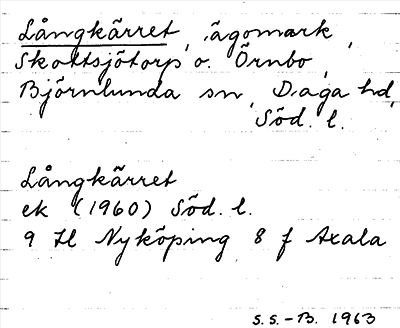 Långkärret, ägomark,
Skottsjötorp o. Örnbo,
Björnlunda sn, Daga hd,
Söd. l.
Långkärret
ek (1960) Söd. l.
9 H Nyköping 8 f Axala
S.S.-B. 1963